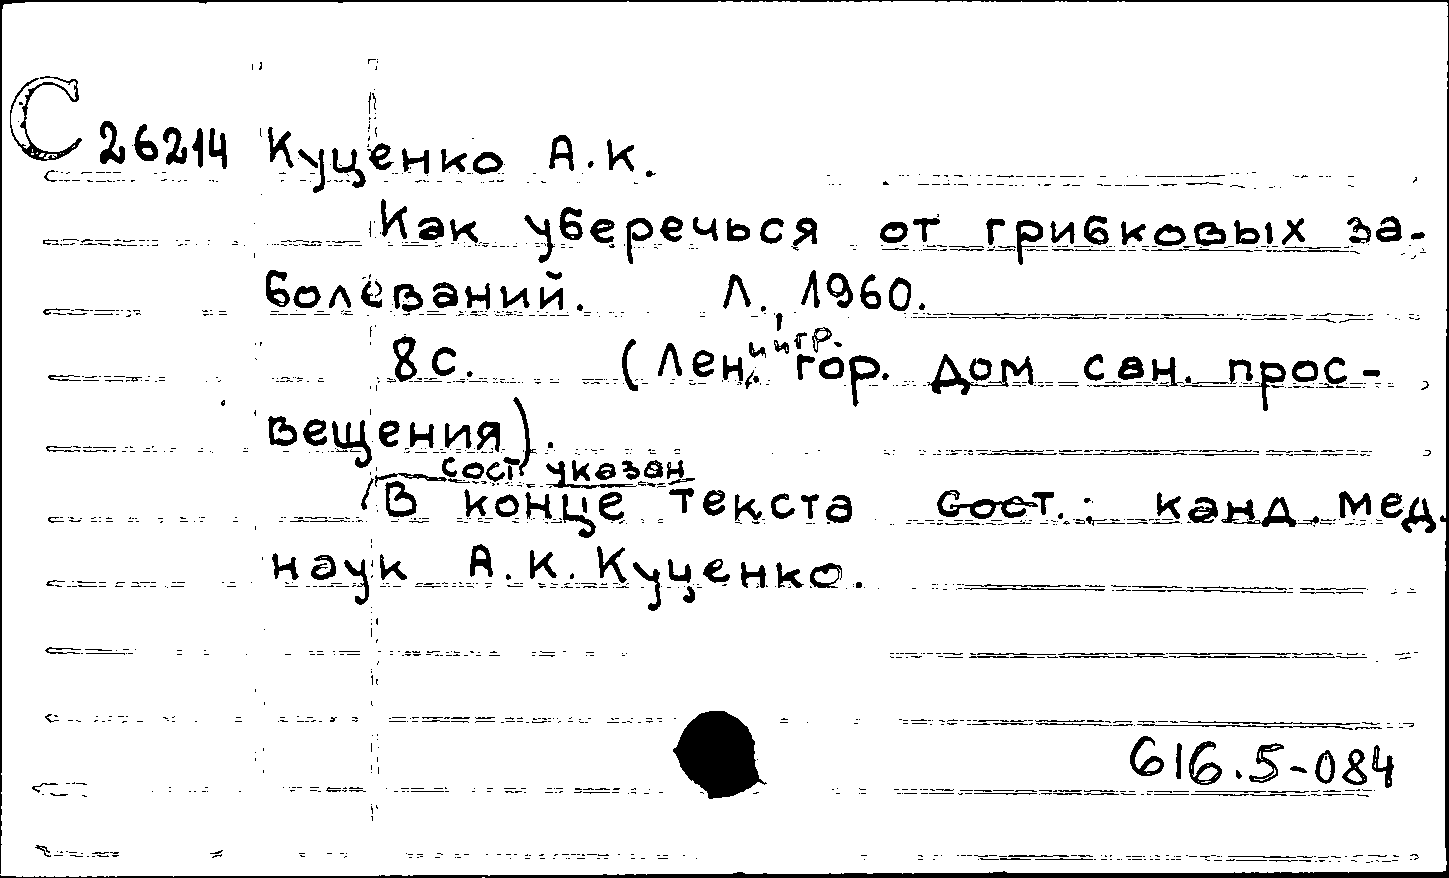 С 26214 Куценко А.К.
Как уберечься от грибковых за-
болеваний. Л., 1960.
8 с. (Ленингр. гор. дом сан. прос-
вещения).
сост. указан
В конце текста сост.: канд. мед.
наук А.К. Куценко.
616.5-084